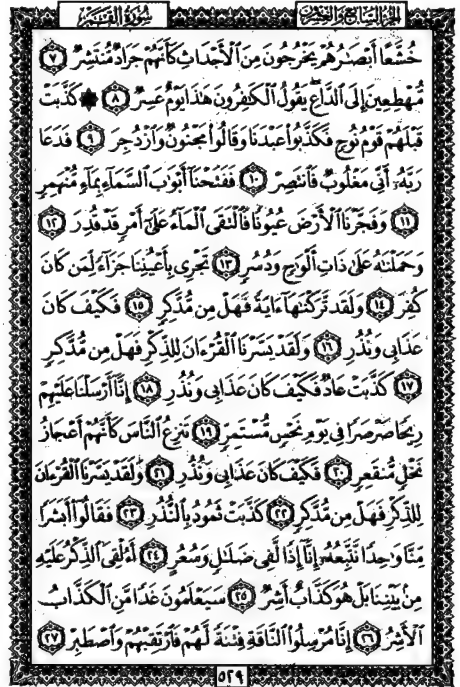 سُورَةُ القَمَرِ الجُزْءُ السَّابِعُ وَالعِشْرُونَ
خُشَّعًا أَبْصَٰرُهُمْ يَخْرُجُونَ مِنَ ٱلْأَجْدَاثِ كَأَنَّهُمْ جَرَادٌ مُّنتَشِرٌ ٧
مُّهْطِعِينَ إِلَى ٱلدَّاعِ يَقُولُ ٱلْكَٰفِرُونَ هَٰذَا يَوْمٌ عَسِرٌ ٨ ۞ كَذَّبَتْ
قَبْلَهُمْ قَوْمُ نُوحٍ فَكَذَّبُوا۟ عَبْدَنَا وَقَالُوا۟ مَجْنُونٌ وَٱزْدُجِرَ ٩ فَدَعَا
رَبَّهُۥٓ أَنِّى مَغْلُوبٌ فَٱنتَصِرْ ١٠ فَفَتَحْنَآ أَبْوَٰبَ ٱلسَّمَآءِ بِمَآءٍ مُّنْهَمِرٍ
١١ وَفَجَّرْنَا ٱلْأَرْضَ عُيُونًا فَٱلْتَقَى ٱلْمَآءُ عَلَىٰٓ أَمْرٍ قَدْ قُدِرَ ١٢
وَحَمَلْنَٰهُ عَلَىٰ ذَاتِ أَلْوَٰحٍ وَدُسُرٍ ١٣ تَجْرِى بِأَعْيُنِنَا جَزَآءً لِّمَن كَانَ
كُفِرَ ١٤ وَلَقَد تَّرَكْنَٰهَآ ءَايَةً فَهَلْ مِن مُّدَّكِرٍ ١٥ فَكَيْفَ كَانَ
عَذَابِى وَنُذُرِ ١٦ وَلَقَدْ يَسَّرْنَا ٱلْقُرْءَانَ لِلذِّكْرِ فَهَلْ مِن مُّدَّكِرٍ
١٧ كَذَّبَتْ عَادٌ فَكَيْفَ كَانَ عَذَابِى وَنُذُرِ ١٨ إِنَّآ أَرْسَلْنَا عَلَيْهِمْ
رِيحًا صَرْصَرًا فِى يَوْمِ نَحْسٍ مُّسْتَمِرٍّ ١٩ تَنزِعُ ٱلنَّاسَ كَأَنَّهُمْ أَعْجَازُ
نَخْلٍ مُّنقَعِرٍ ٢٠ فَكَيْفَ كَانَ عَذَابِى وَنُذُرِ ٢١ وَلَقَدْ يَسَّرْنَا ٱلْقُرْءَانَ
لِلذِّكْرِ فَهَلْ مِن مُّدَّكِرٍ ٢٢ كَذَّبَتْ ثَمُودُ بِٱلنُّذُرِ ٢٣ فَقَالُوٓا۟ أَبَشَرًا
مِّنَّا وَٰحِدًا نَّتَّبِعُهُۥٓ إِنَّآ إِذًا لَّفِى ضَلَٰلٍ وَسُعُرٍ ٢٤ أَءُلْقِىَ ٱلذِّكْرُ عَلَيْهِ
مِنۢ بَيْنِنَا بَلْ هُوَ كَذَّابٌ أَشِرٌ ٢٥ سَيَعْلَمُونَ غَدًا مَّنِ ٱلْكَذَّابُ
ٱلْأَشِرُ ٢٦ إِنَّا مُرْسِلُوا۟ ٱلنَّاقَةِ فِتْنَةً لَّهُمْ فَٱرْتَقِبْهُمْ وَٱصْطَبِرْ ٢٧
٥٢٩